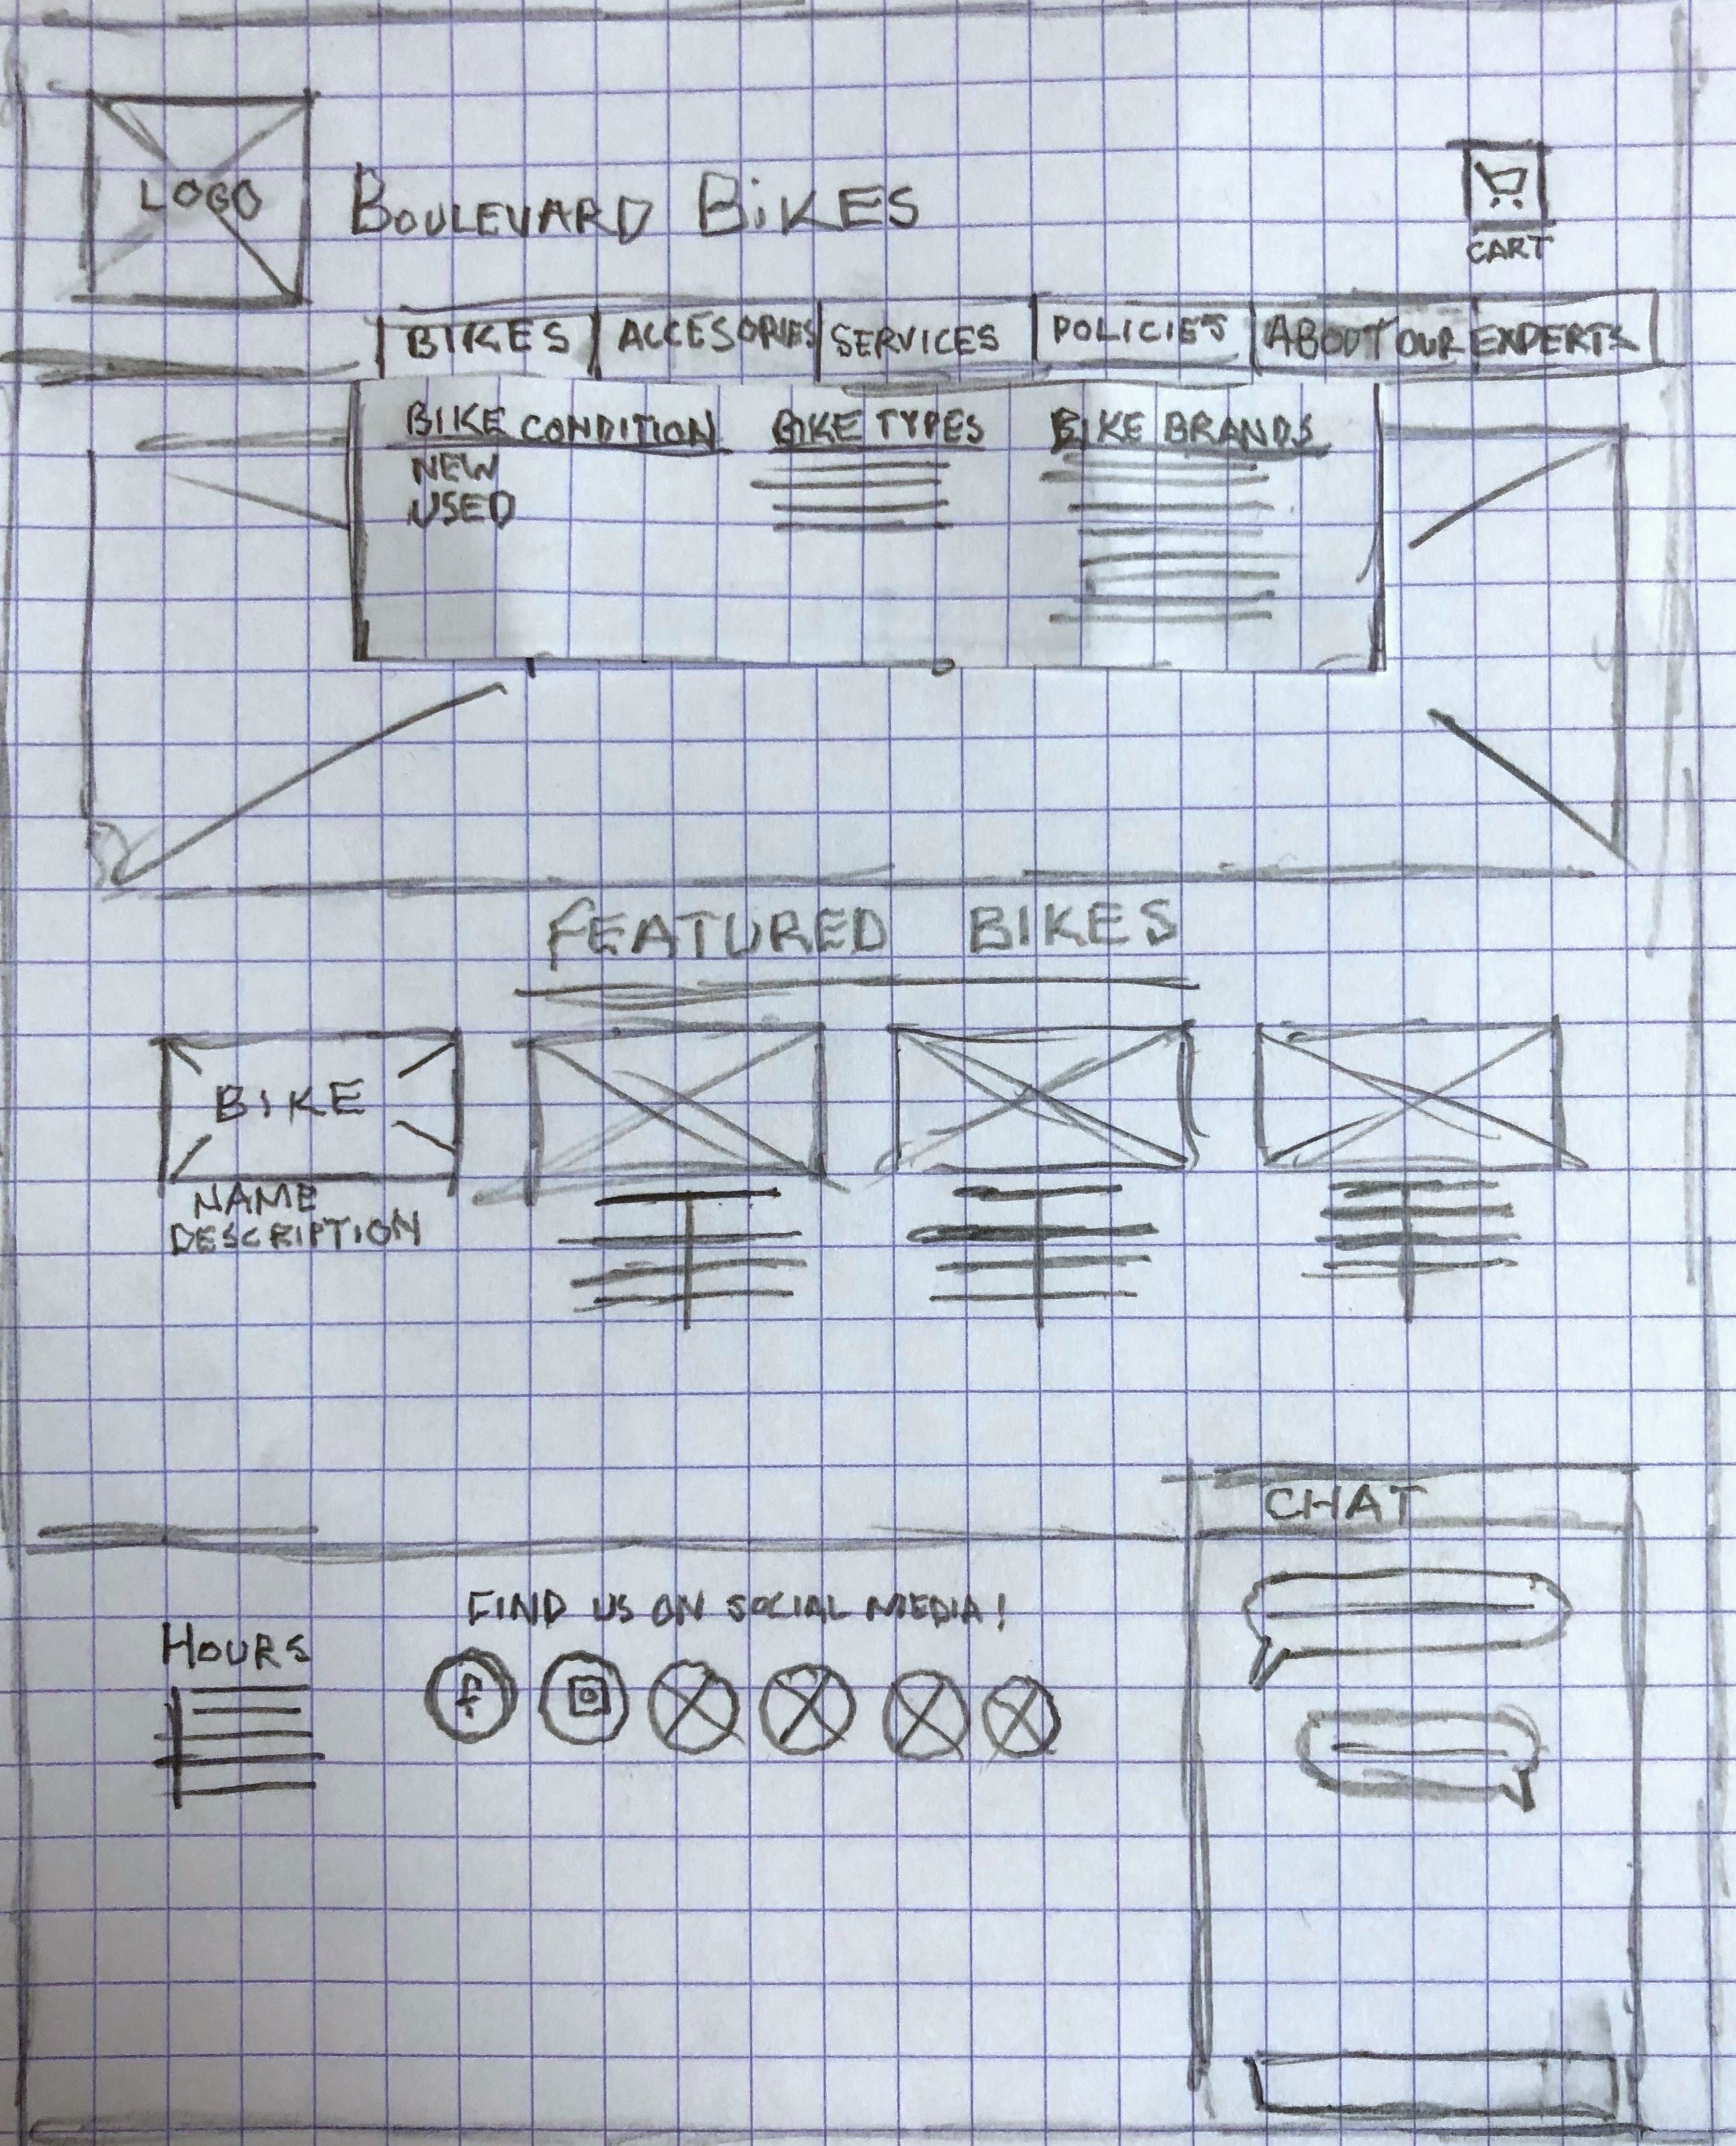 LOGO
BOULEVARD BiKES
CART
BIKES
ACCESORIES
SERVICES
POLICIES
ABOUT OUR EXPERTS
BIKE CONDITION
NEW
USED
BIKE TYPES
BIKE BRANDS
FEATURED BIKES
BIKE
NAME
DESCRIPTION
CHAT
FIND US ON SOCIAL MEDIA!
HOURS
f